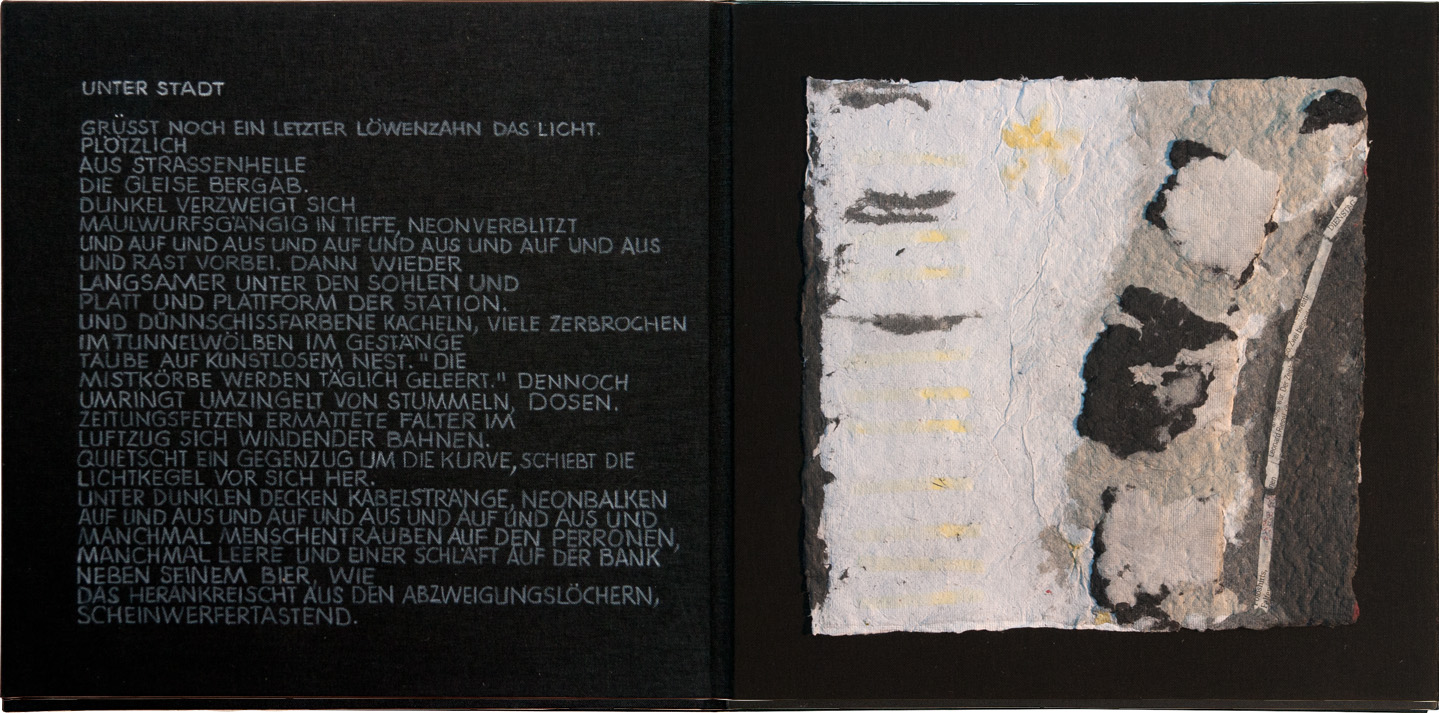 UNTER STADT
GRÜSST NOCH EIN LETZTER LÖWENZAHN DAS LICHT.
PLÖTZLICH
AUS STRASSENHELLE
DIE GLEISE BERGAB.
DUNKEL VERZWEIGT SICH
MAULWURFSGÄNGIG IN TIEFE, NEONVERBLITZT
UND AUF UND AUS UND AUF UND AUS UND AUF UND AUS
UND RAST VORBEI. DANN WIEDER
LANGSAMER UNTER DEN SOHLEN UND
PLATT UND PLATTFORM DER STATION.
UND DÜNNSCHISSFARBENE KACHELN, VIELE ZERBROCHEN
IM TUNNELWÖLBEN IM GESTÄNGE
TAUBE AUF KUNSTLOSEM NEST. "DIE
MISTKÖRBE WERDEN TÄGLICH GELEERT." DENNOCH
UMRINGT UMZINGELT VON STUMMELN, DOSEN.
ZEITUNGSFETZEN ERMATTETE FALTER IM
LUFTZUG SICH WINDENDER BAHNEN.
QUIETSCHT EIN GEGENZUG UM DIE KURVE, SCHIEBT DIE
LICHTKEGEL VOR SICH HER.
UNTER DUNKLEN DECKEN KABELSTRÄNGE, NEONBALKEN
AUF UND AUS UND AUF UND AUS UND AUF UND AUS UND
MANCHMAL MENSCHENTRAUBEN AUF DEN PERRONEN,
MANCHMAL LEERE UND EINER SCHLÄFT AUF DER BANK
NEBEN SEINEM BIER, WIE
DAS HERANKREISCHT AUS DEN ABZWEIGUNGSLÖCHERN,
SCHEINWERFERTASTEND.